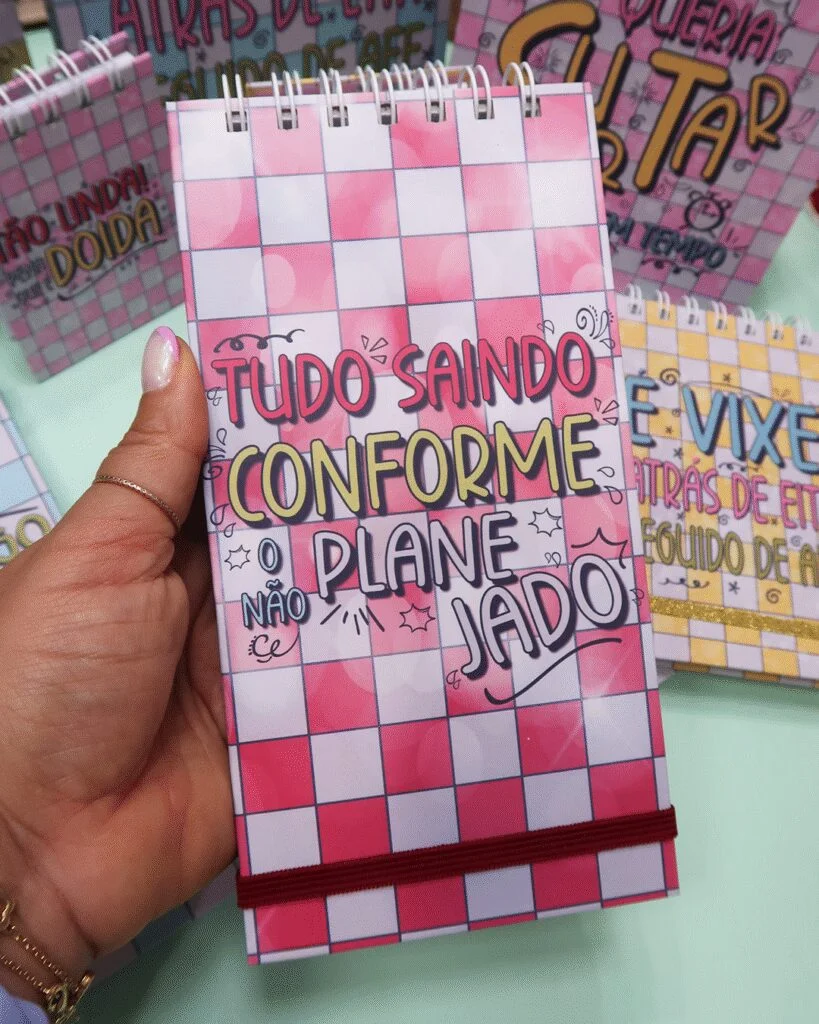 ATRÁS DE EITA
SEGUIDO DE AFE
QUERIA
SURTAR
TEMPO
TÃO LINDA!
DOIDA
TUDO SAINDO
CONFORME
O
NÃO
PLANE
JADO
É VIXE
ATRÁS DE EIT
SEGUIDO DE A